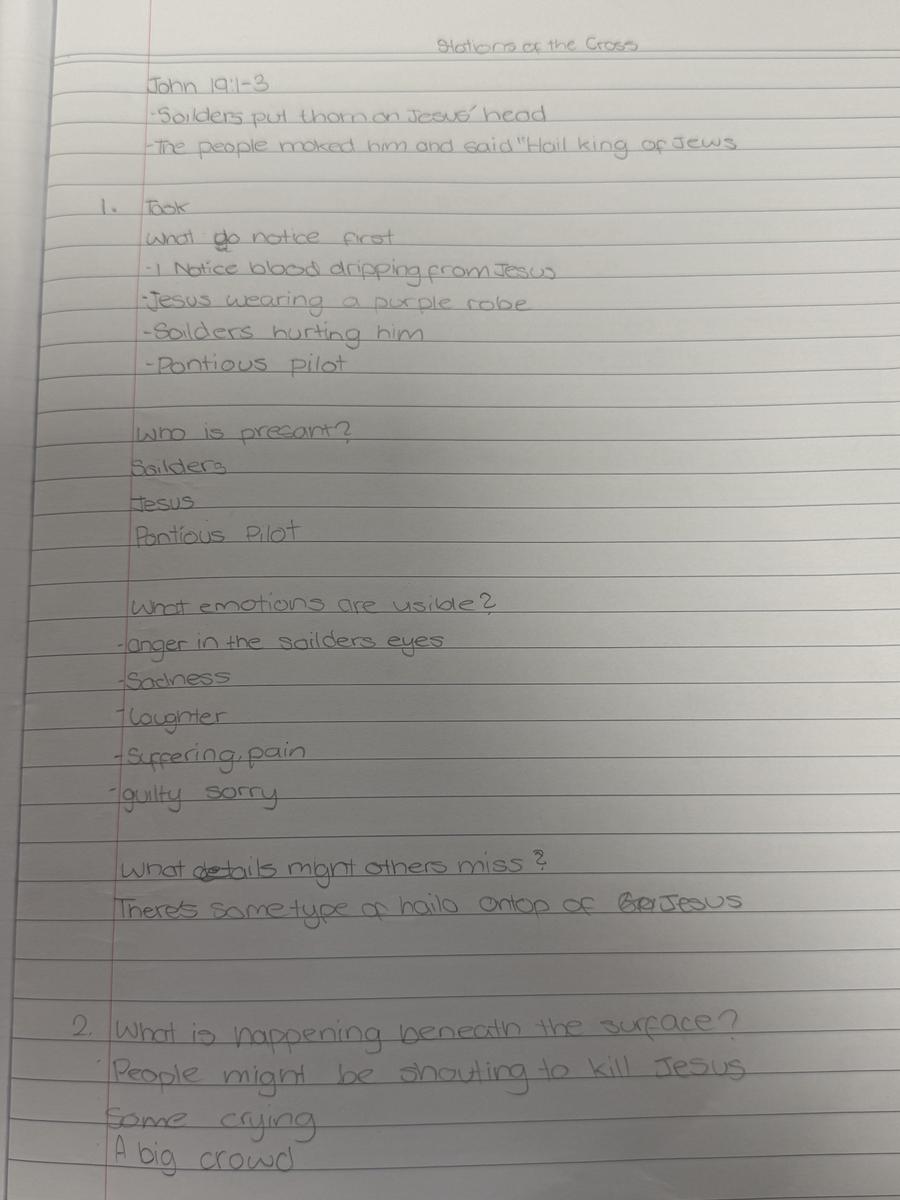 Stations of the Cross
John 19:1-3
-Soilders put thorn on Jesus' head
-The people moked him and said "Hail king of Jews
1. Task
What do notice first
-I Notice blood dripping from Jesus
-Jesus wearing a purple robe
-Soilders hurting him
-Pontious pilot
Who is presant?
Soilders
Jesus
Pontious Pilot
What emotions are visible?
-anger in the soilders eyes
-Sadness
-laughter
-Suffering, pain
-guilty sorry
What details might others miss?
There's some type of hailo ontop of Jesus
2. What is happening beneath the surface?
People might be shouting to kill Jesus
Some crying
A big crowd